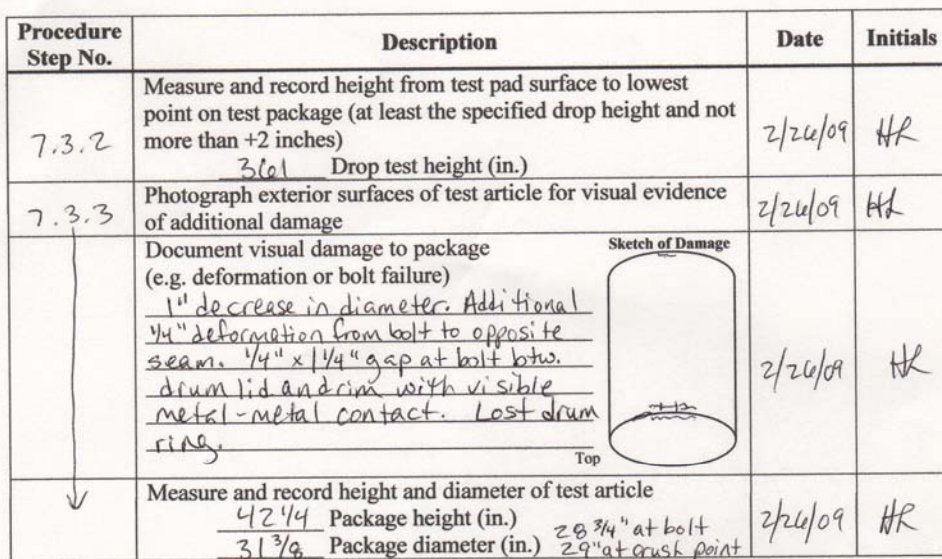 Procedure Step No. Description Date Initials
Measure and record height from test pad surface to lowest
point on test package (at least the specified drop height and not
more than +2 inches)
7.3.2 2/26/09 HR
361 Drop test height (in.)
Photograph exterior surfaces of test article for visual evidence
of additional damage
7.3.3 2/26/09 HR
Document visual damage to package
(e.g. deformation or bolt failure)
Sketch of Damage
1" decrease in diameter. Additional
1/4" deformation from bolt to opposite
seam. 1/4" x 1 1/4" gap at bolt btw.
drum lid and rim with visible
metal-metal contact. Lost drum
ring.
Top
2/26/09 HR
Measure and record height and diameter of test article
42 1/4 Package height (in.)
31 3/8 Package diameter (in.)
28 3/4" at bolt
29" at crush point
2/26/09 HR